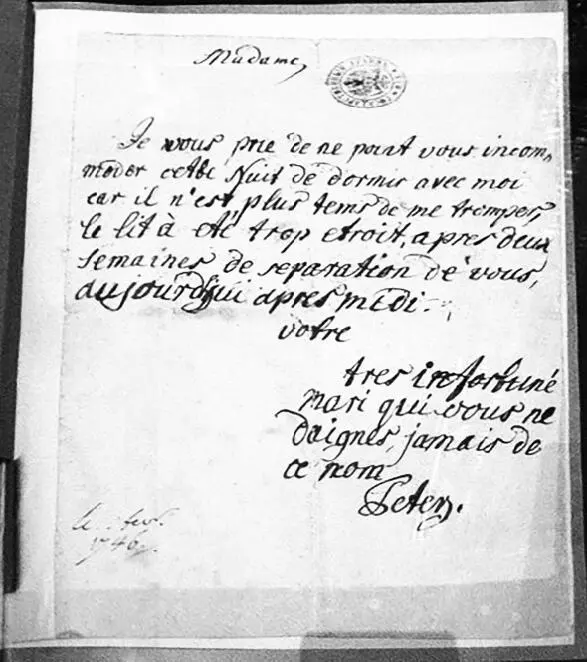 Madame,
Je vous prie de ne point vous incom,
moder cette Nuit de dormir avec moi
car il n'est plus tems de me tromper,
le lit à eté trop etroit, apres deux
semaines de separation de vous,
aujourd'hui apres midi.
votre
tres infortuné
mari qui vous ne
daignes jamais de
ce nom
Peter.
le
1746.